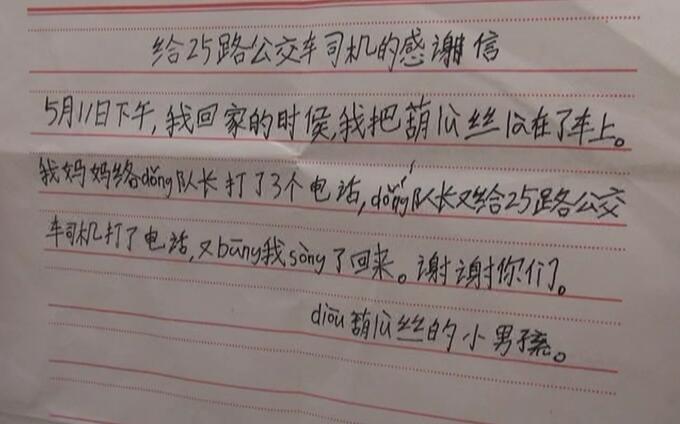 给25路公交车司机的感谢信
5月11日下午,我回家的时候,我把葫瓜丝瓜在了车上。
我妈妈给dǒng队长打了3个电话,dǒng队长又给25路公交
车司机打了电话,又bāng我sòng了回来。谢谢你们。
diōu葫瓜丝的小男孩。